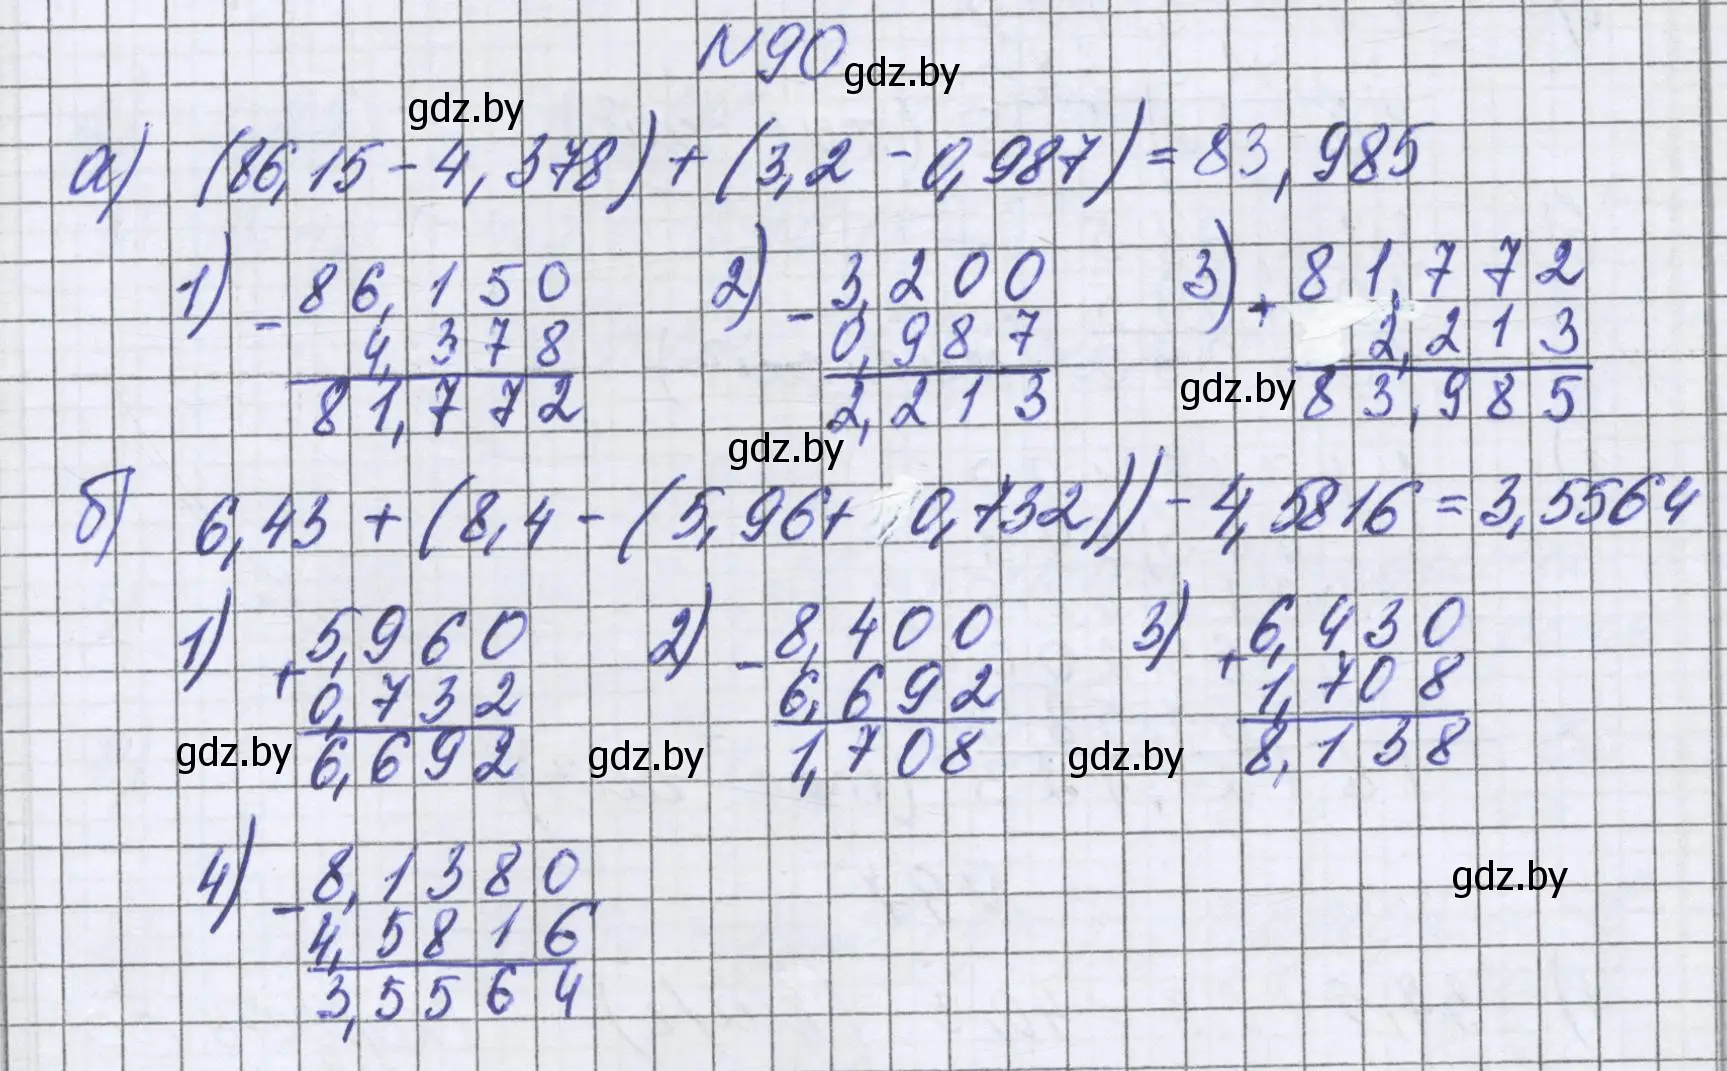 N90
gdz.by
gdz.by
а) (86,15 - 4,378) + (3,2 - 0,987) = 83,985
1) - 86,150 2) - 3,200 3) + 81,772
4,378 0,987 2,213
81,772 2,213 83,985
gdz.by
gdz.by
б) 6,43 + (8,4 - (5,96 + 0,732)) - 4,5816 = 3,5564
1) + 5,960 2) - 8,400 3) + 6,430
0,732 6,692 1,708
6,692 1,708 8,138
gdz.by gdz.by gdz.by
4) - 8,1380
4,5816
3,5564
gdz.by